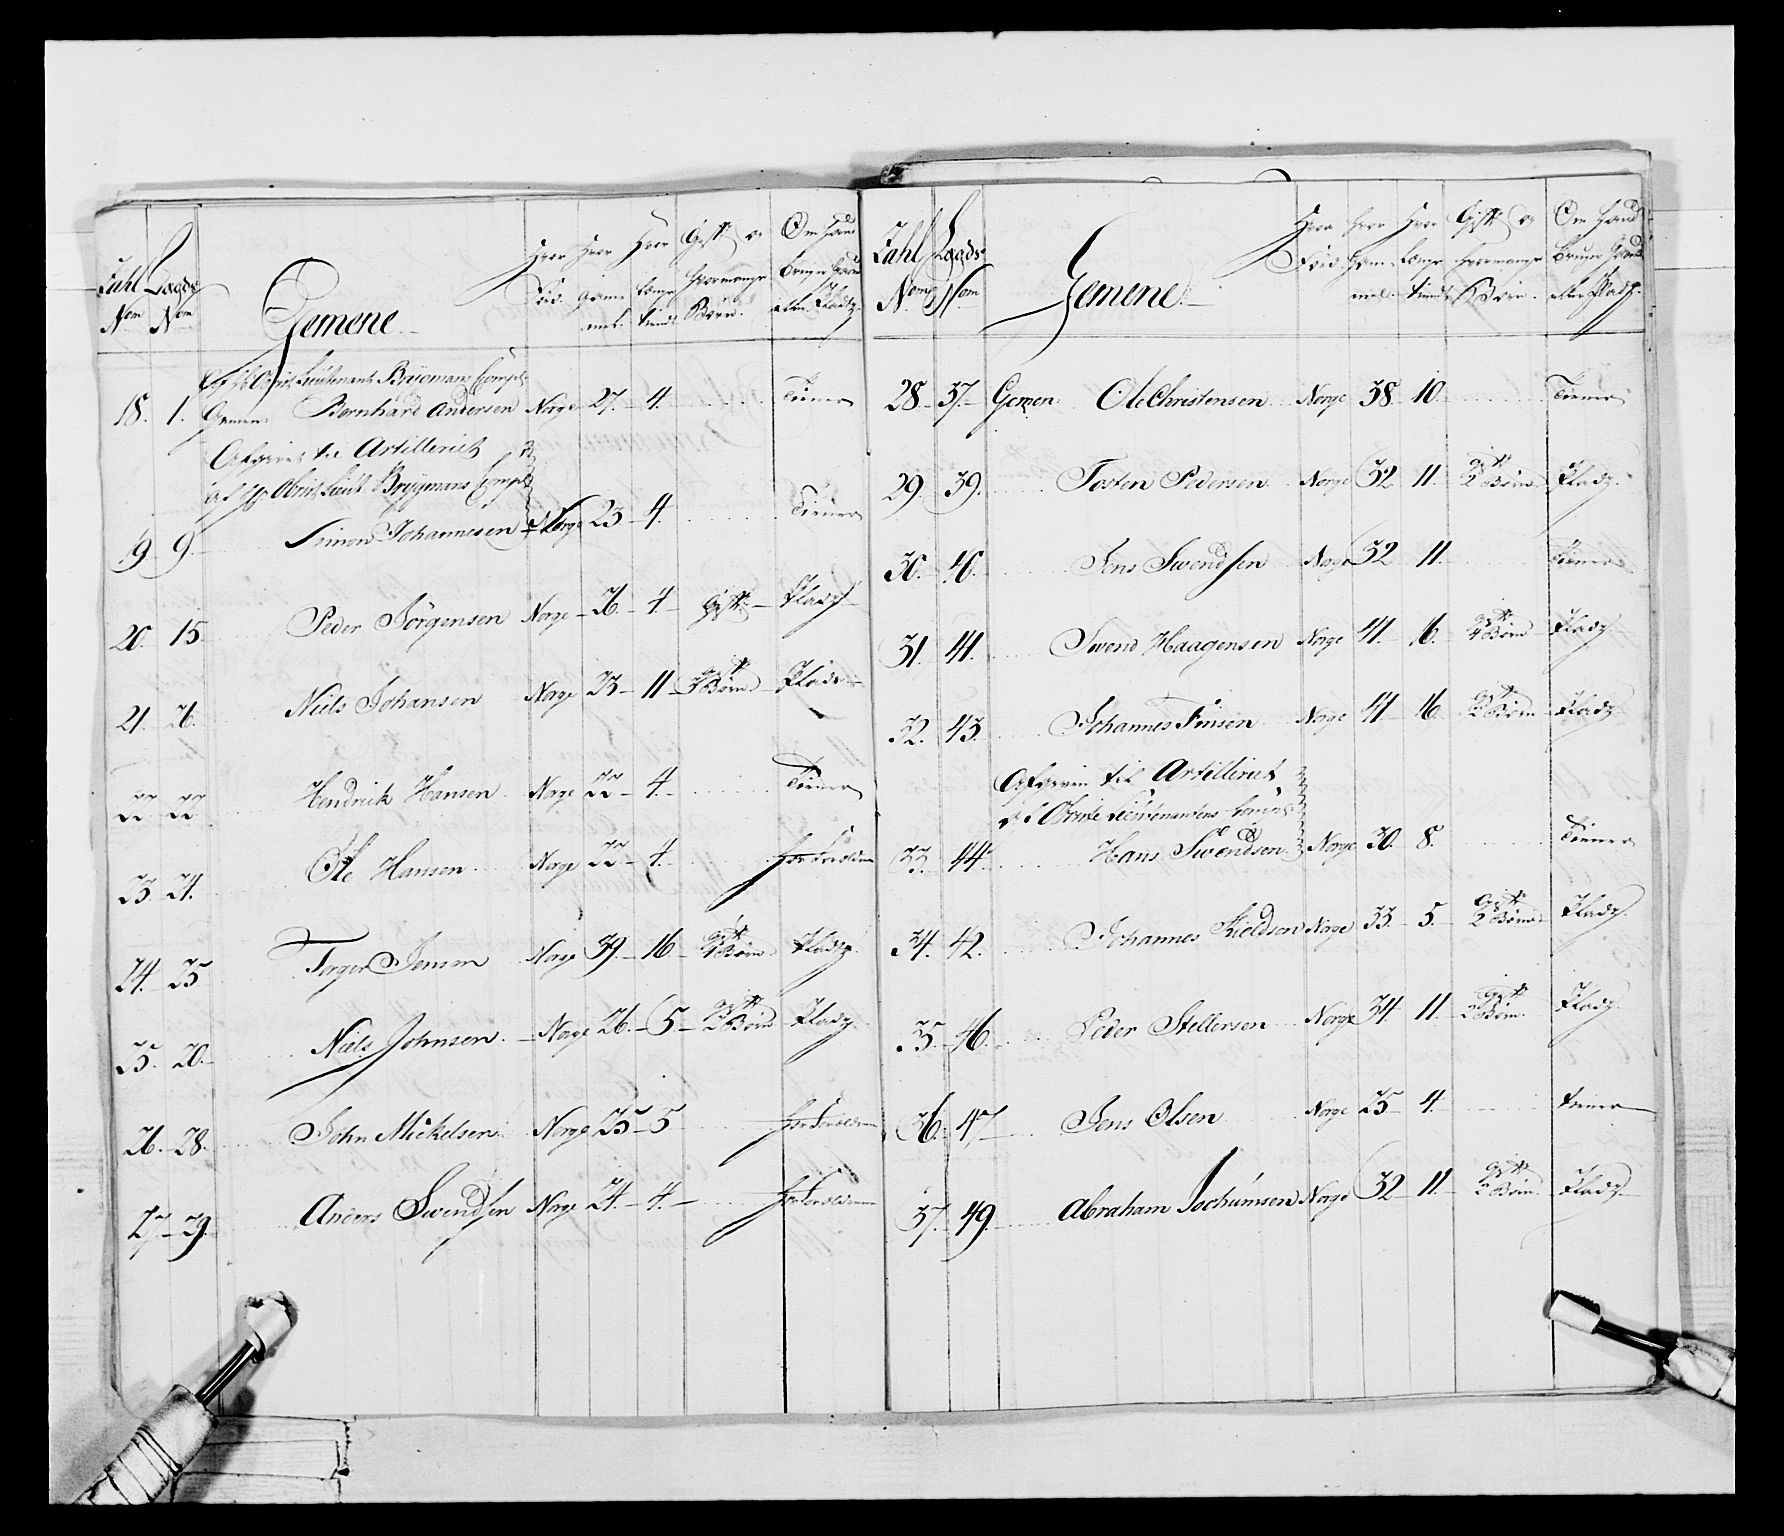 Zahl Nom
Lægds Nom
Gemene
Hvor Fød.
Hvor Gam-mel.
Hvor Længe tient
Gift og Hvormange Børn.
Om Hand bruger Gaard eller Pladz.
Af Obrist Lieutenant Brygmans Comp:
18. 1. Gemen: Bernhard Andersen Norge 27. 4. Tiener
Afgivet til Artilleriet
af Obrist Lieut: Brygmans Comp:
19 9. Simon Johannesen Norge 23 4. Tiener
20. 15 Peder Jörgensen Norge 26. 4. Gift Pladz
21 26. Niels Johansen Norge 23 11 gift 3 Børn Pladz
22 22 Hendrich Hansen Norge 22 4. Tiener
23 24. Ole Hansen Norge 22 4.
24. 25 Torger Jensen Norge 39. 16 gift 4 Børn Pladz
25. 20. Niels Johnsen Norge 26. 5 gift 2 Børn Pladz
26. 28. John Mickelsen Norge 25 5
27 29. Anders Swendsen Norge 24. 4.
Zahl Nom
Lægds Nom
Gemene
Hvor Fød.
Hvor Gam-mel.
Hvor Længe tient
Gift og Hvormange Børn.
Om Hand bruger Gaard eller Pladz.
28. 37. Gemen. Ole Christensen Norge 38. 10. Tiener
29. 39. Tosten Pedersen Norge 32 11. gift 2 Børn Pladz.
30. 40. Jens Swendsen Norge 32 11. Tiener
31. 41. Swend Haagensen Norge 41. 16. gift 4 Børn Pladz
32. 43. Johannes Finsen Norge 41 16 gift 2 Børn Pladz
Afgiven til Artilleriet
af Obrist Lieutenantens Comp:
33. 44. Hans Swendsen Norge 30. 8. Tiener
34. 42. Johannes Kieldsen Norge 33. 5. gift 2 Børn Pladz.
35. 46. Peder Stellersen Norge 34. 11. gift 2 Børn Pladz
36. 47 Jens Olsen Norge 25 4. Tiener
37. 49. Abraham Jochumsen Norge 32 11. gift 2 Børn Pladz